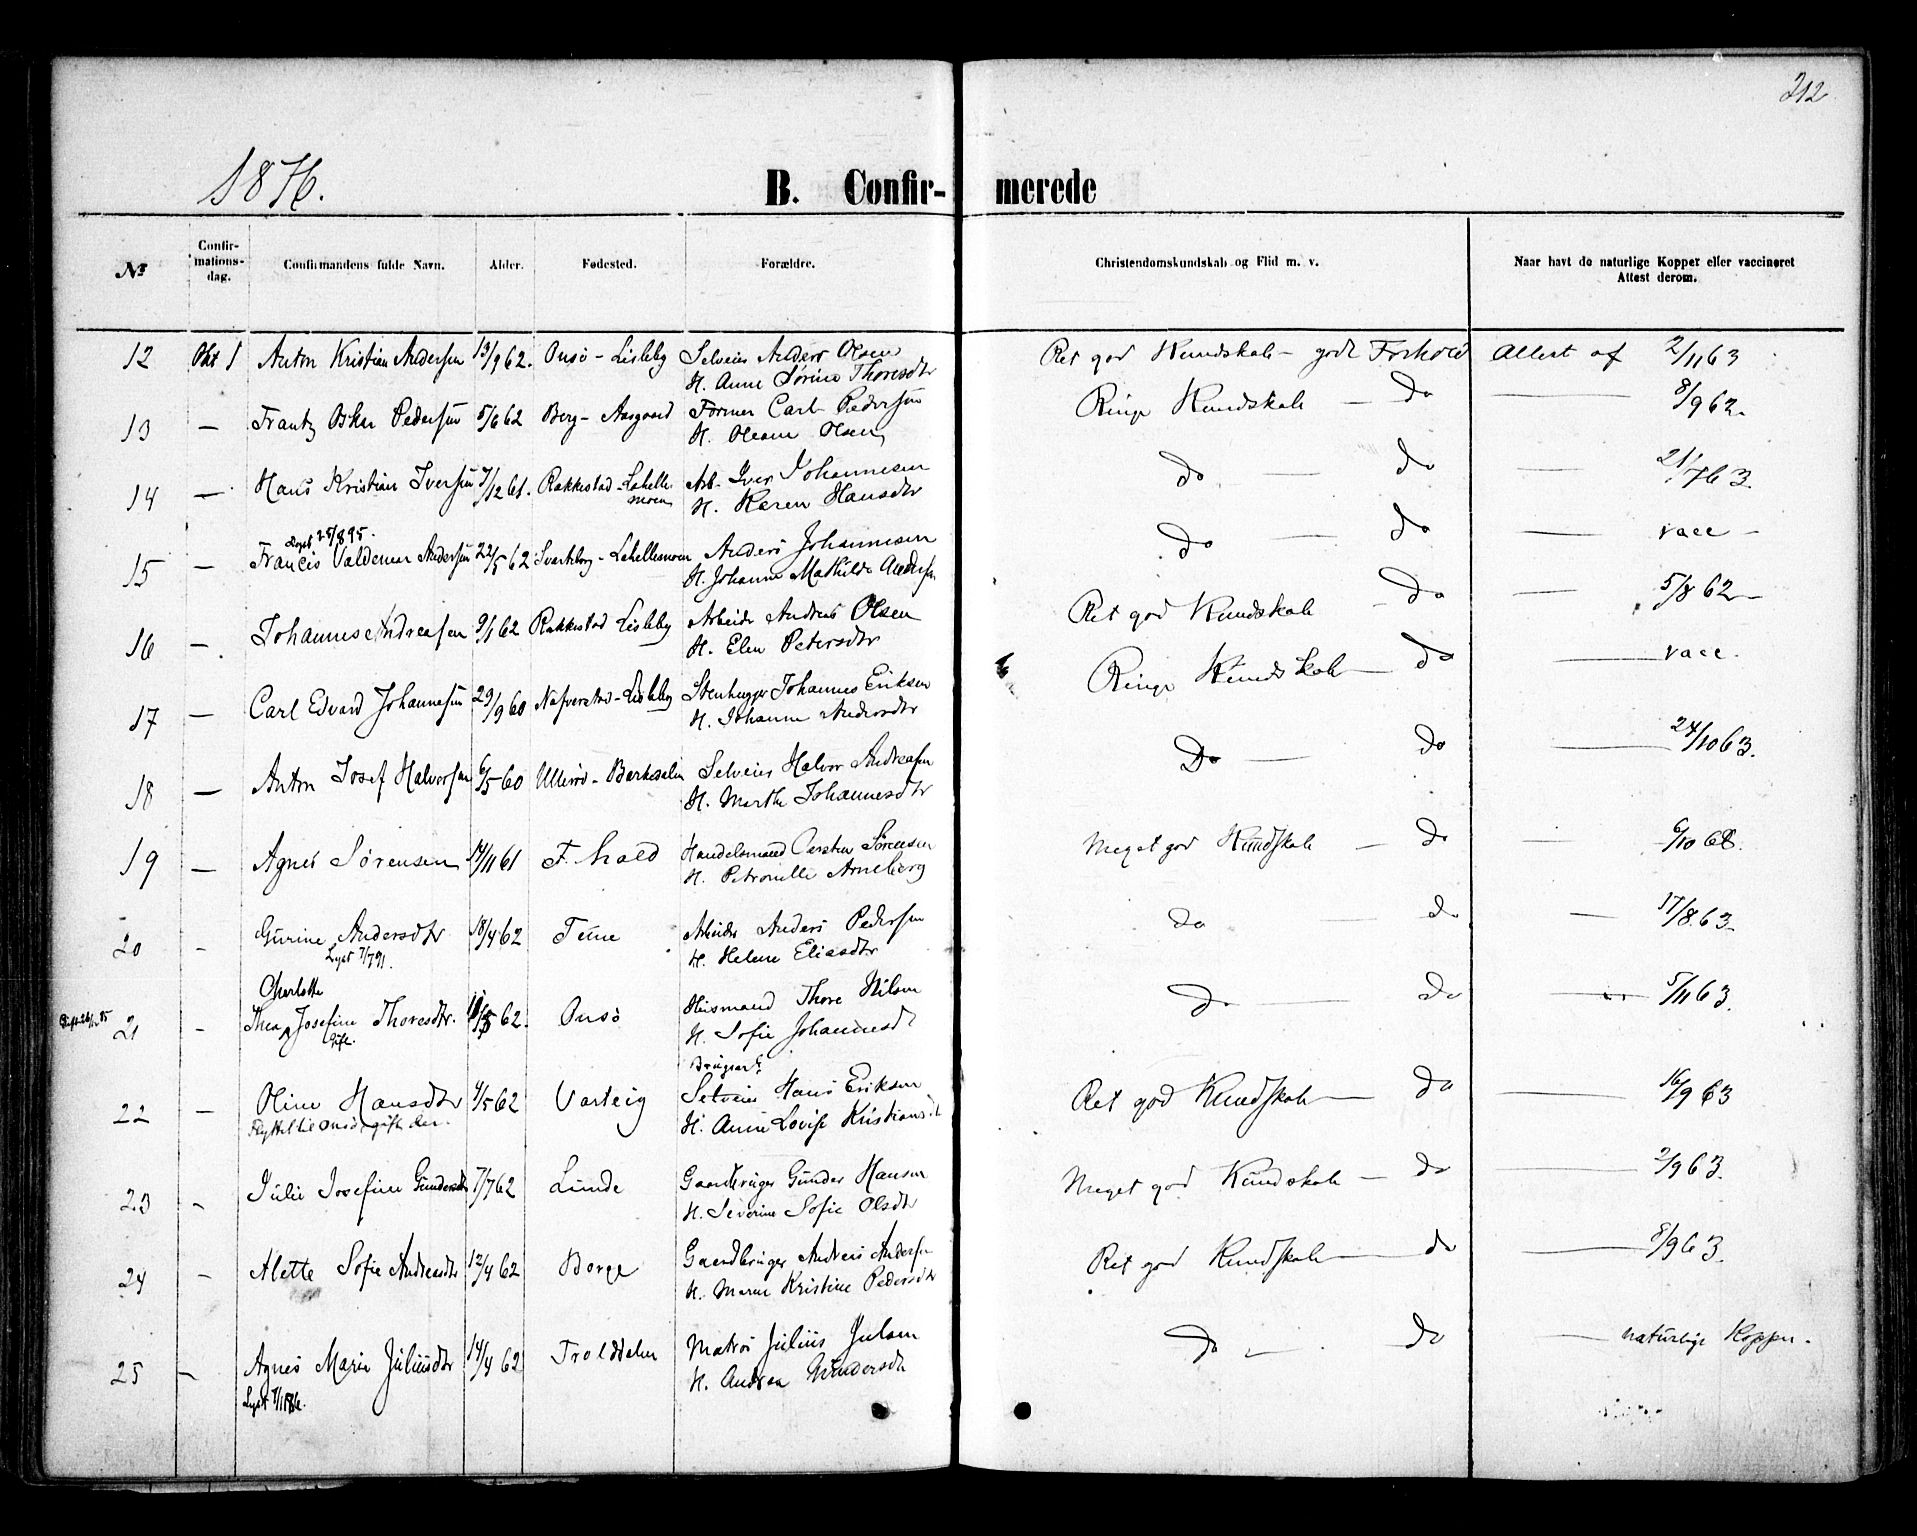 212
1876.
B. Confir- merede
No
Confir-
mations-
dag.
Confirmandens fulde Navn.
Alder.
Fødested.
Forældre.
Christendomskundskab og Flid m. v.
Naar havt de naturlige Kopper eller vaccineret
Attest derom.
12 Okt 1 Anton Kristian Andersen 13/9 62. Onsö - Lisleby Selveier Anders Olsen Ret god Kundskab - godt Forhold Attest af 2/11 63
H. Anne Sørine Thoresdtr
13 — Frantz Oskar Pedersen 5/6 62 Berg - Aasgaard Former Carl Pedersen Ringe Kundskab — do — 8/9 62.
H. Olsen
14 — Hans Kristian Iversen 7/12 61. Rakkestad - Lahelle- Arb. Iver Johannesen do — do — 21/7 63.
moen H. Karen Hansdtr
25/8 95.
15 — Francis Valdemar Andersen 22/5 62 Svartborg - Lahellemoen Anders Johannesen do — do — vacc -
H. Johanne Mathilde Andersen
16 — Johannes Andreasen 9/1 62 Rakkestad Lisleby Arbeider Andreas Olsen Ret god Kundskab - do — 5/8 62 -
H. Elen Petersdtr
17 — Carl Edvard Johannesen 29/9 60 Nafverstad - Lisleby Stenhugger Johannes Eriksen Ringe Kundskab — do — vacc.
H. Johanne Andersdtr
18 — Anton Josef Halvorsen 6/5 60 Ullerö - Selveier Halvor Andreasen Do — do — 24/10 63.
H. Marthe Johannesdtr
19 — Agnes Sørensen 14/11 61 F. hald Handelsmand Carsten Sörensen Meget god Kundskab — do — 6/10 68.
H. Petronille Arneberg
20 - Gurine Andersdtr 18/4 62 Tune Arbeider Anders Pedersen do — do — 17/8 63.
Lyst 7/7 91. H. Helene Eliasdtr
Charlotte
21 - Thea Josefine Thoresdtr. 62. Onsö Husmand Thore Nilsen do — do — 5/11 63.
Gift. H. Sofie Johannesdt
Bruger
22 - Oline Hansdtr 4/5 62 Varteig Selveier Hans Eriksen Ret god Kundskab — do — 16/9 63
Flyttet til Onsö, gift der. H. Anne Lovise Kristiansdt
23 - Julie Josefine Gundersdtr 7/7 62 Lunde Gaardbruger Gunder Hansen Meget god Kundskab — do — 2/9 63.
H. Severine Sofie Olsdtr
24 - Alette Sofie Andreasdtr 12/4 62 Borge Gaardbruger Andreas Andersen Ret god Kundskab — do — 8/9 63.
H. Maren Kristine Pedersdtr
25 - Agnes Marie Juliusdtr 14/4 62 Trolddalen Matros Julius Julsen do — do — naturlige Kopper.
Lyst H. Andrea Gundersdtr